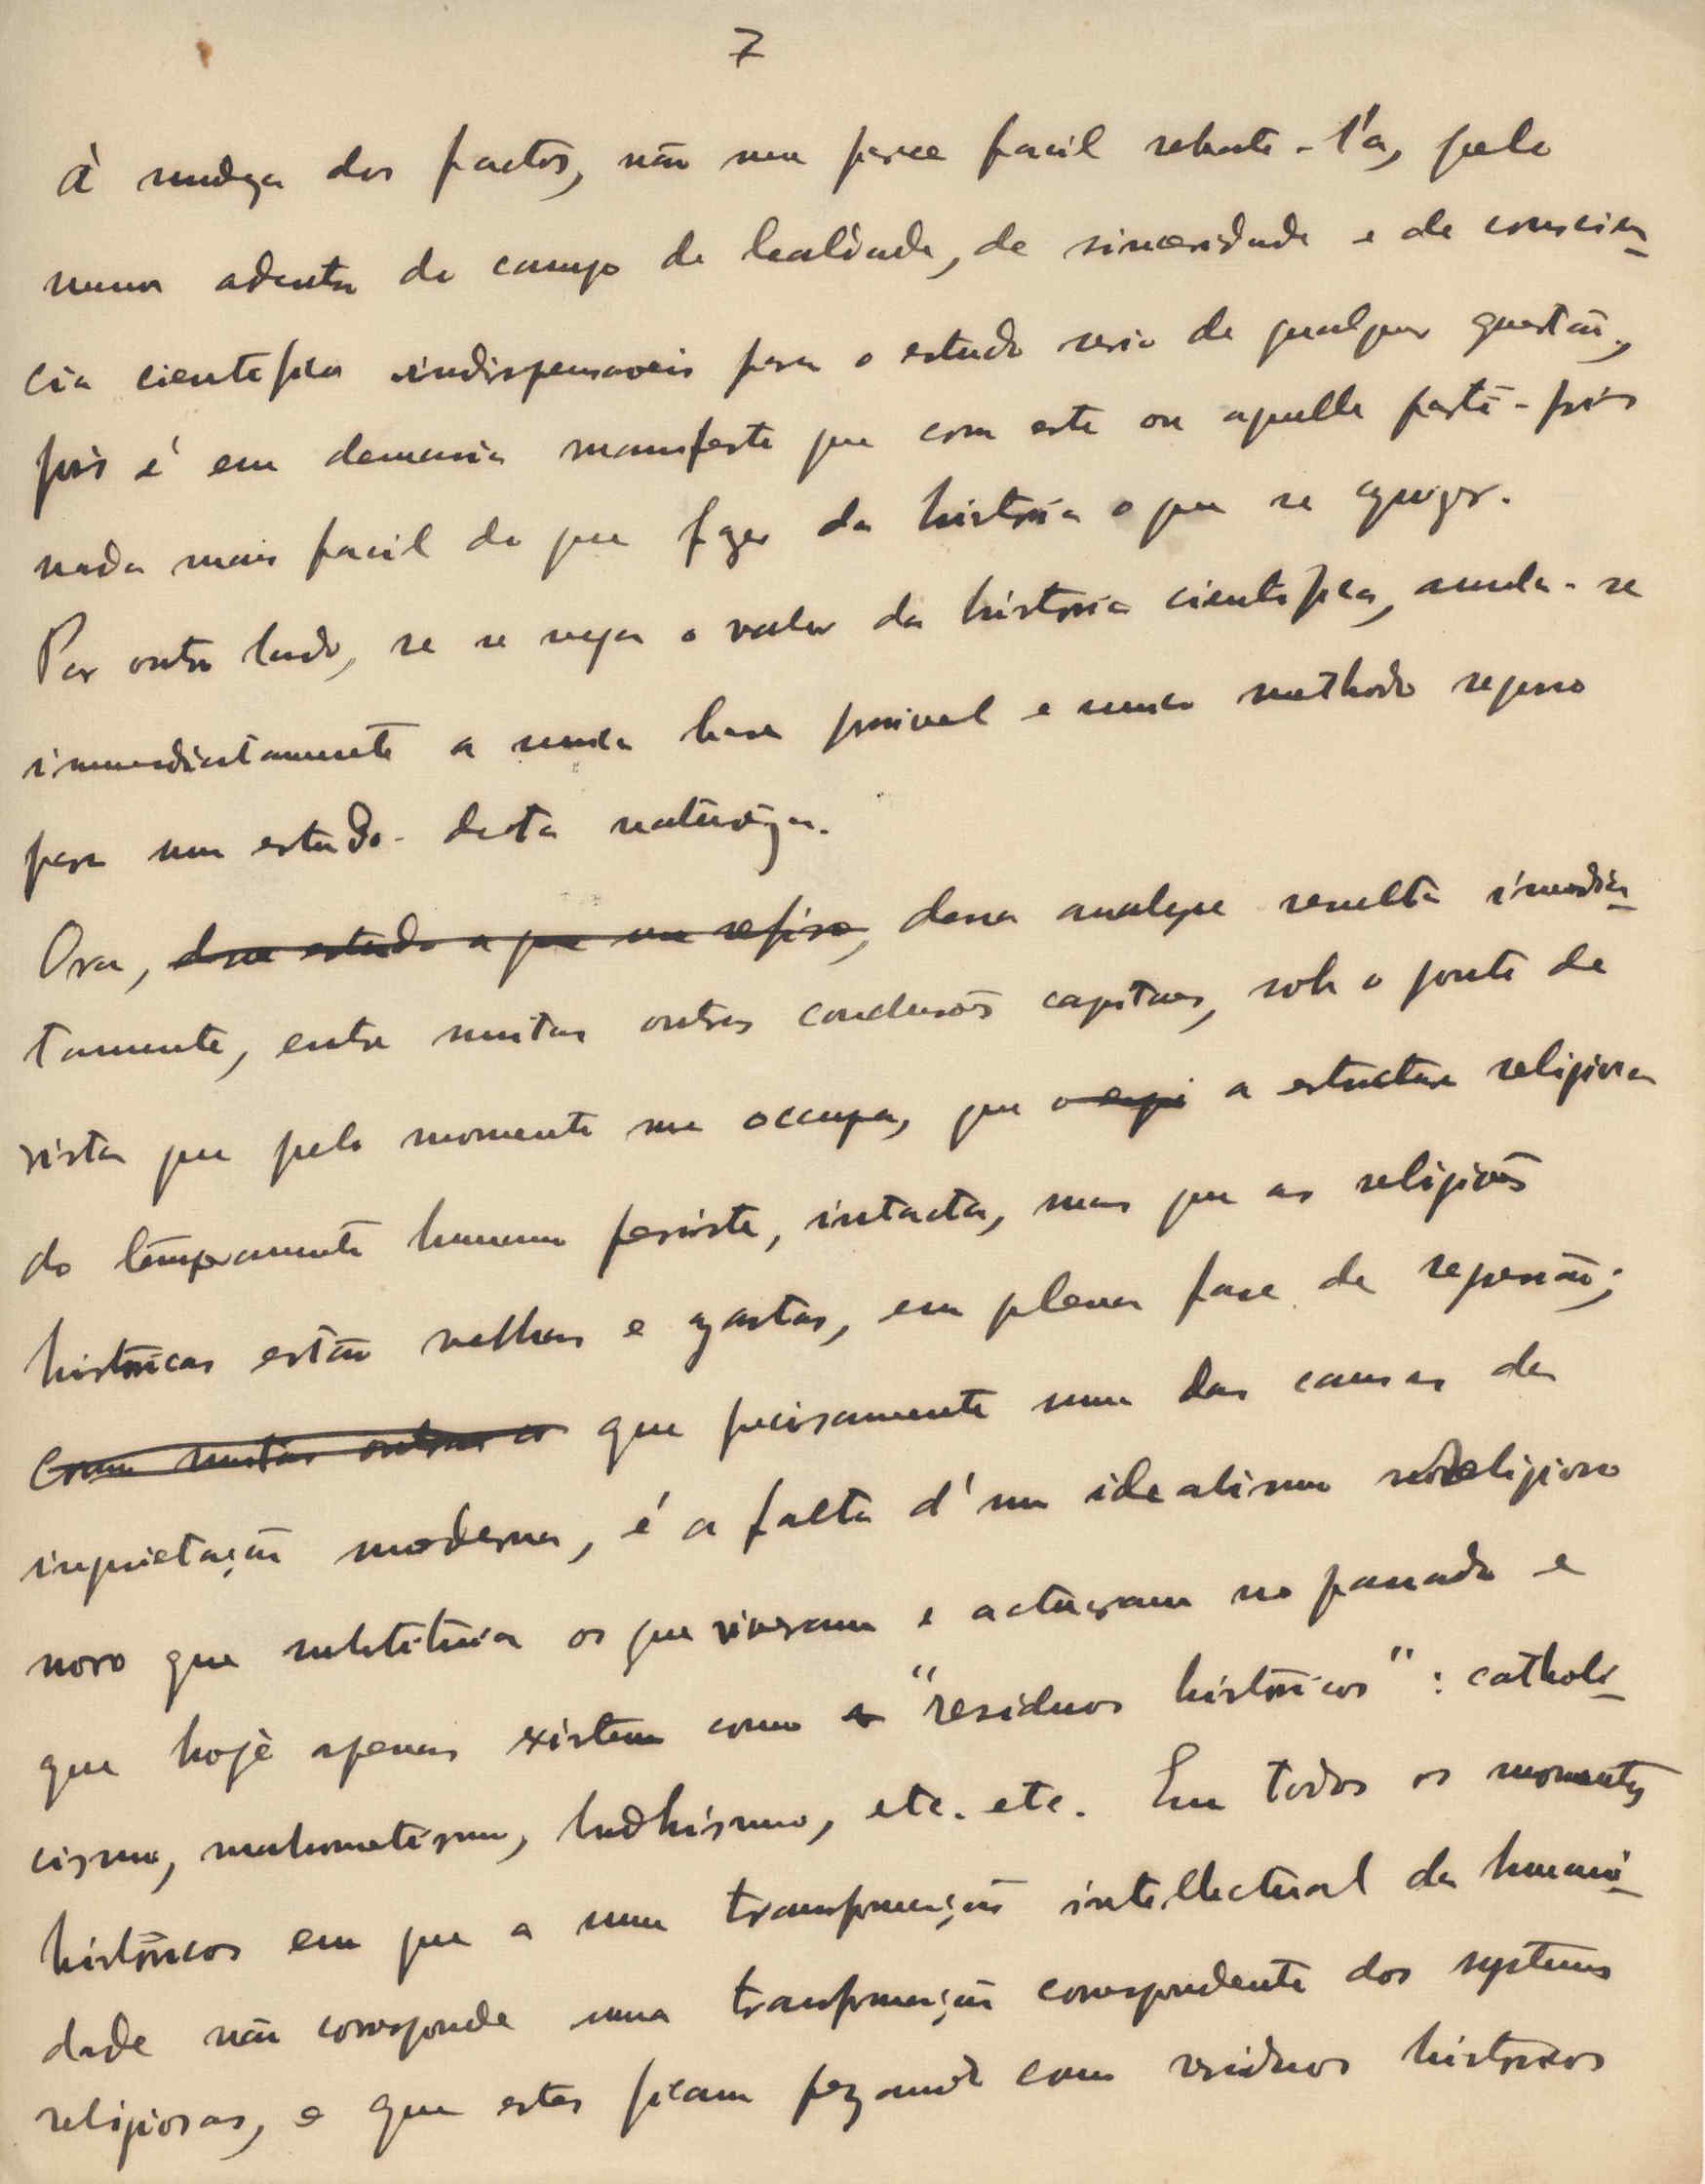 7
À nudeza dos factos, não me parece facil rebate-l'a, pelo
menos adentro do campo de lealdade, de sinceridade e de conscien-
cia cientifica indispensaveis para o estudo serio de qualquer questão,
pois é em demasia manifesto que com este ou aquelle parti-pris
nada mais facil do que fazer da historia o que se quizer.
Por outro lado, se se nega o valor da historia cientifica, annula-se
immediatamente a unica base possivel e unico methodo seguro
para um estudo desta natureza.
Ora, desse estudo a que me refiro, dessa analyse resulta imedia-
tamente, entre muitas outras conclusões capitaes, sob o ponto de
vista que pelo momento me occupa, que o a estructura religiosa
do temperamento humano persiste, intacta, mas que as religiões
históricas estão velhas e gastas, em plena fase de regressão;
como muitas outras e que precisamente uma das causas da
inquietação moderna, é a falta d'um idealismo religioso
novo que substitua os que viveram e actuaram no passado e
que hoje apenas existem como "residuos históricos": catholi-
cismo, mahometismo, budhismo, etc. etc. Em todos os momentos
históricos em que a uma transformação intellectual da humani-
dade não corresponde uma transformação correspondente dos systemas
religiosos, e que estes ficam pezando como residuos historicos